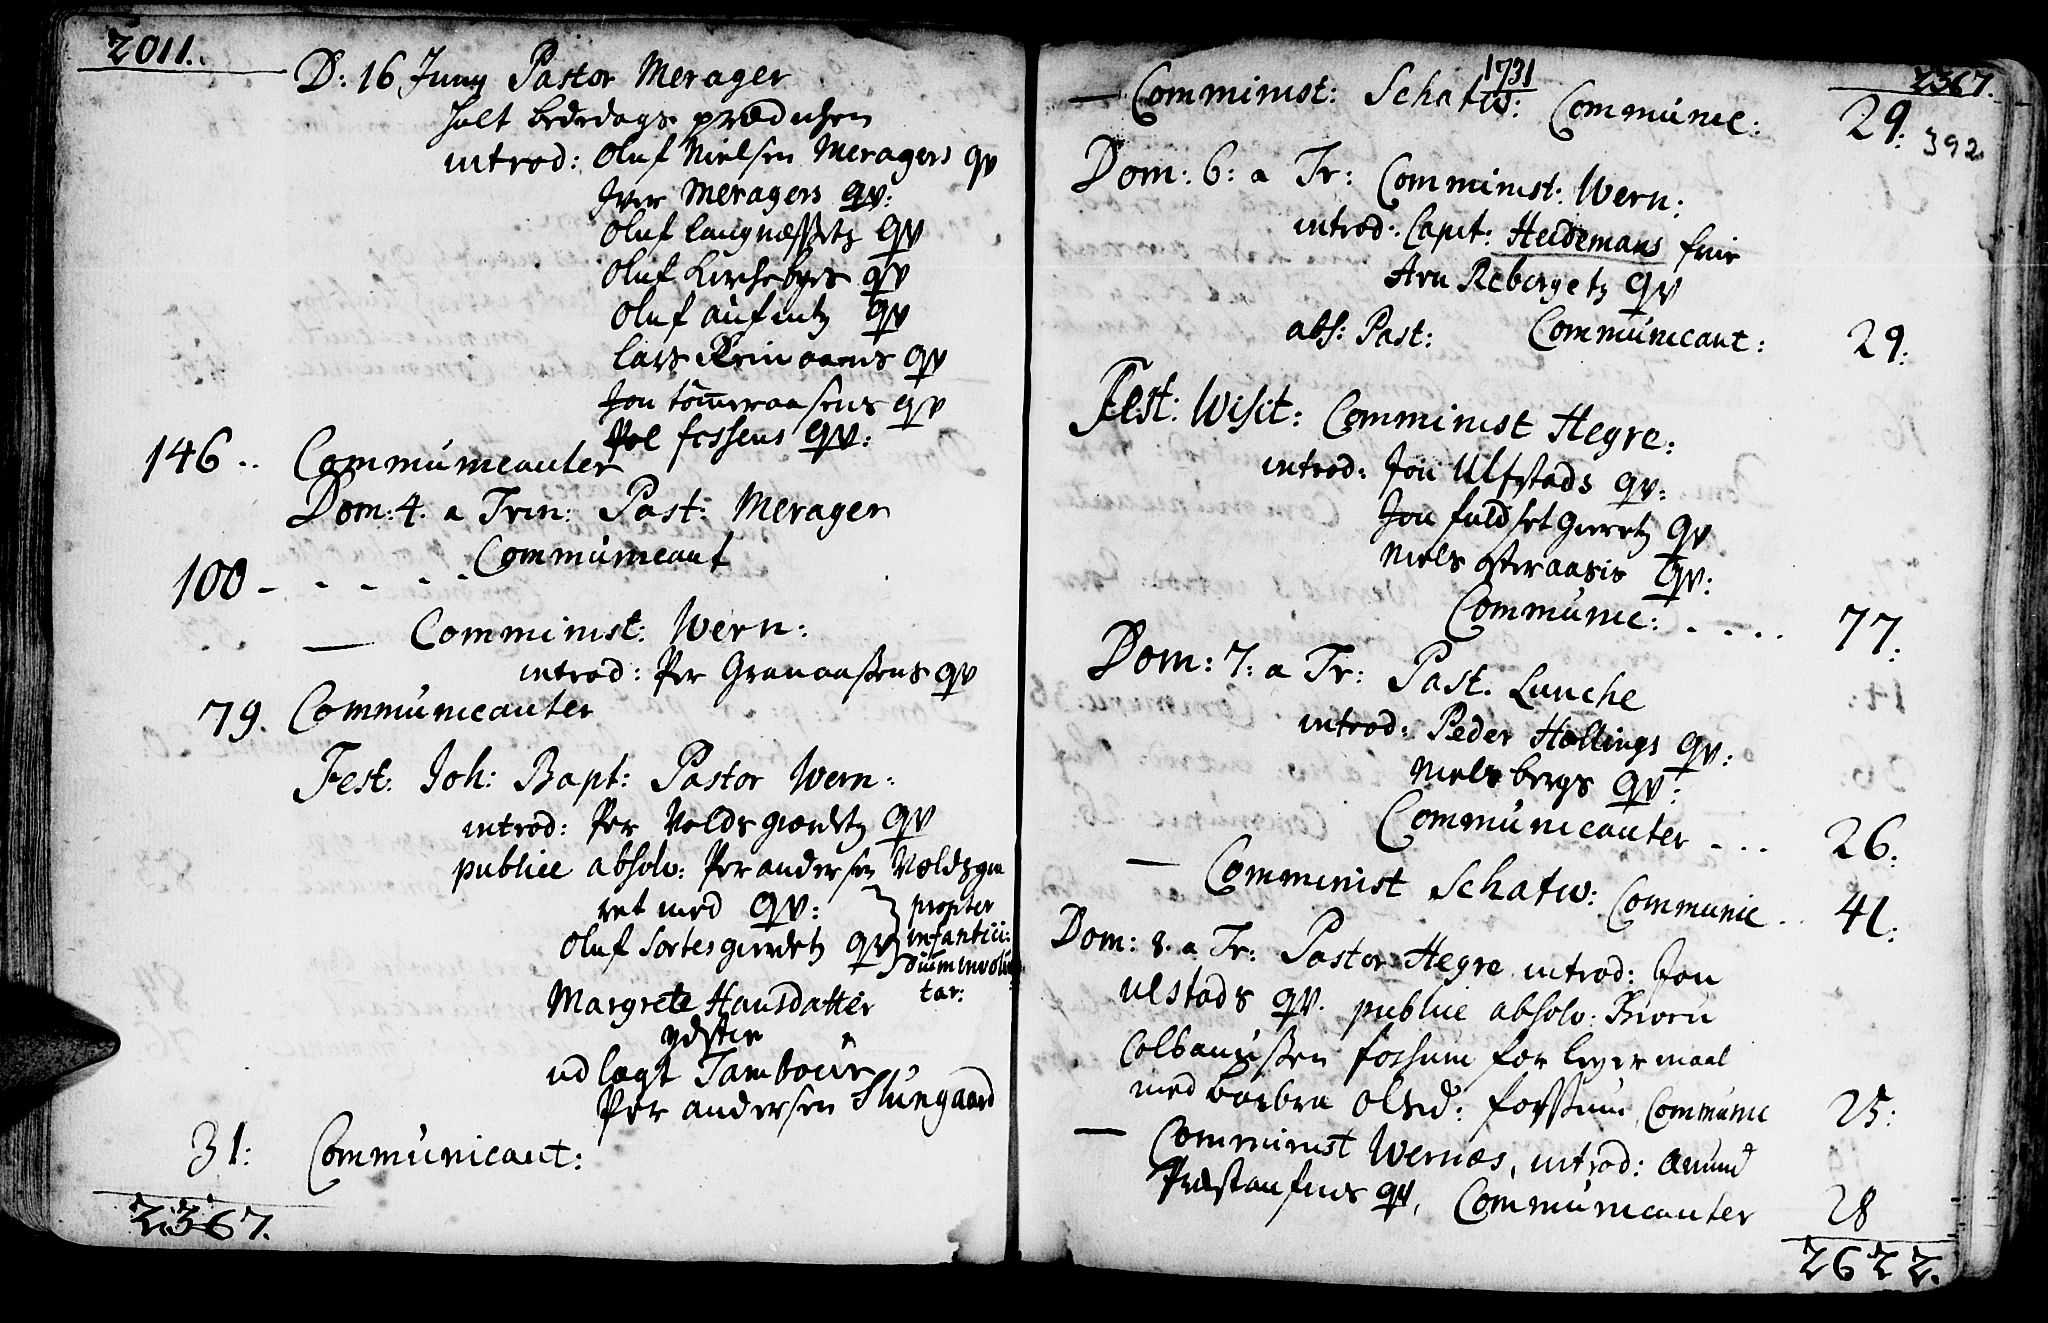 2011.
D: 16 Juny Pastor Merager
holt bededags prædichen
introd: Oluf Nielsen Meragers qv
Iver Meragers qv:
Oluf Langnæssetz qv
Oluf Kirchebyes qv
Oluf aufintz qv
Lars qv
Jon Tömeraasens qv
Pol fossens qv:
146.. Communicanter
Dom: 4. a Trin: Past: Merager
100 - - - - - Communicant
— Comminist: Wern:
introd: Per Granaassens qv
79. Communicanter
Fest: Joh: Bapt: Pastor Wern:
introd: Per Voldsgierdetz qv
publice absolv: Per andersen Voldzgie
ret med qv: propter
Oluf Sortesgierdetz qv infantici:
dium involun
tar:
Margrete Hansdatter
ydstie
udlagt Tambour
Per andersen Slungaard
31: Communicant:
2367.
1731
2367.
— Comminist: Schatw: Communic: 29.
392
Dom: 6: a Tr: Comminist: Wern:
introd: Capit: Heidemans frue
Arn Rebergetz qv
abs: Past: Communicant: 29.
Fest: Visit: Comminist Hegre:
introd: Jon Ulfstads qv:
Jon fuldset gieretz qv
Niels qv:
Communic: . . . . 77.
Dom: 7: a Tr: Past. Lunche
introd: Peder Hollings qv:
Niels bergs qv:
Communicanter - . . 26.
— Comminist Schatw: Communic . . 41.
Dom: 8. a Tr: Pastor Hegre introd: Jon
ulstads qv. publice absolv: Biorn
Colbanussen fossum for leyermaal
med Barbra Olsd: fossum, Communic 25:
— Comminist Wernæs, introd: Amund
qv, Communicanter 28
2622.